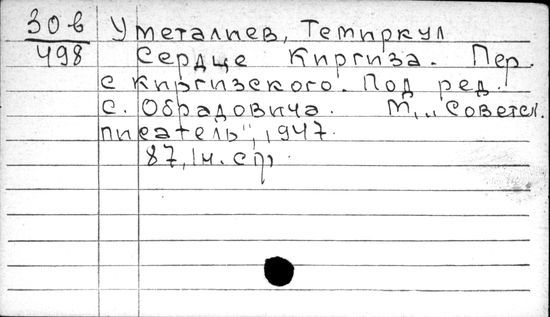 30 в
498
Уметалиев, Темиркул
Сердце Киргиза. Пер.
с киргизского. Под ред.
С. Обрадовича. М., „Советск.
писатель", 1947.
87, 1 н. с.